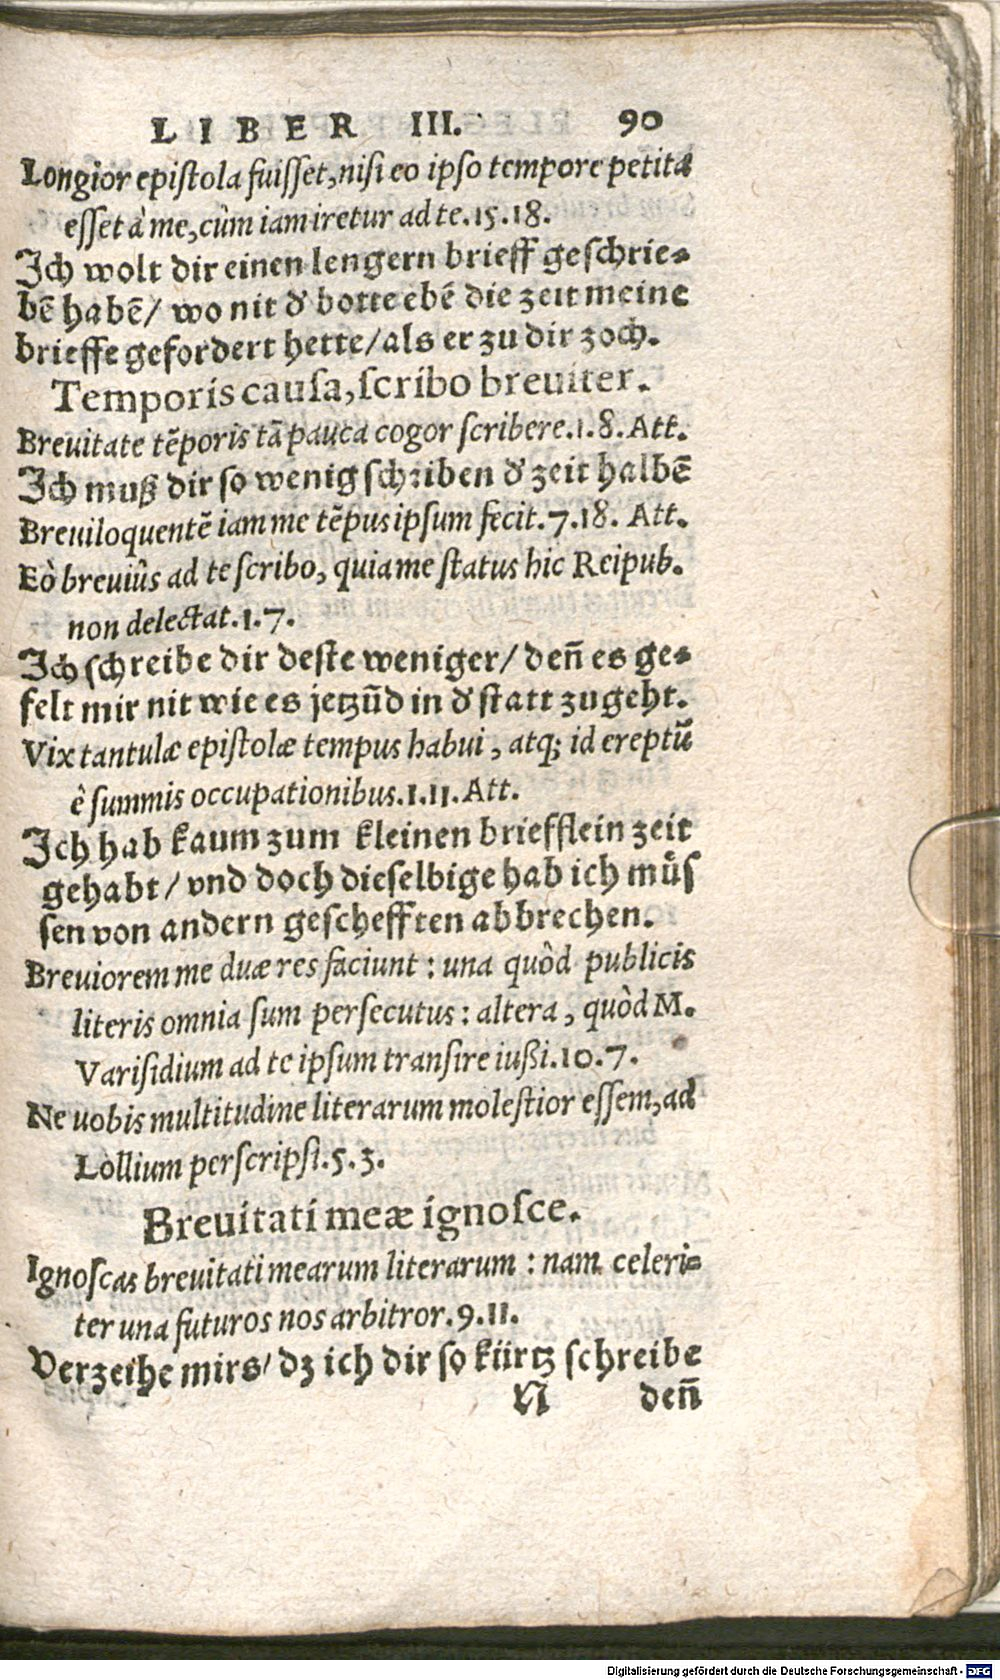 LIBER III. 90
Longior epistola fuisset, nisi eo ipso tempore petita
esset à me, cùm iam iretur ad te. 15. 18.
Ich wolt dir einen lengern brieff geschrie-
bē habē/ wo nit d' botte ebē die zeit meine
brieffe gefordert hette/ als er zu dir zoch.
Temporis causa, scribo breuiter.
Breuitate tēporis tā pauca cogor scribere. 1. 8. Att.
Ich muß dir so wenig schriben d' zeit halbē
Breuiloquentē iam me tēpus ipsum fecit. 7. 18. Att.
Eò breuiùs ad te scribo, quia me status hic Reipub.
non delectat. 1. 7.
Ich schreibe dir deste weniger/ deñ es ge-
felt mir nit wie es jetzūd in d' statt zugeht.
Vix tantulæ epistolæ tempus habui, atq; id ereptū
è summis occupationibus. 1. 11. Att.
Ich hab kaum zum kleinen briefflein zeit
gehabt/ vnd doch dieselbige hab ich müs
sen von andern geschefften abbrechen.
Breuiorem me duæ res faciunt: una quòd publicis
literis omnia sum persecutus: altera, quòd M.
Varisidium ad te ipsum transire iußi. 10. 7.
Ne uobis multitudine literarum molestior essem, ad
Lollium perscripsi. 5. 3.
Breuitati meæ ignosce.
Ignoscas breuitati mearum literarum: nam celeri-
ter una futuros nos arbitror. 9. 11.
Verzeihe mirs/ dz ich dir so kürtz schreibe
N deñ
Digitalisierung gefördert durch die Deutsche Forschungsgemeinschaft - DFG